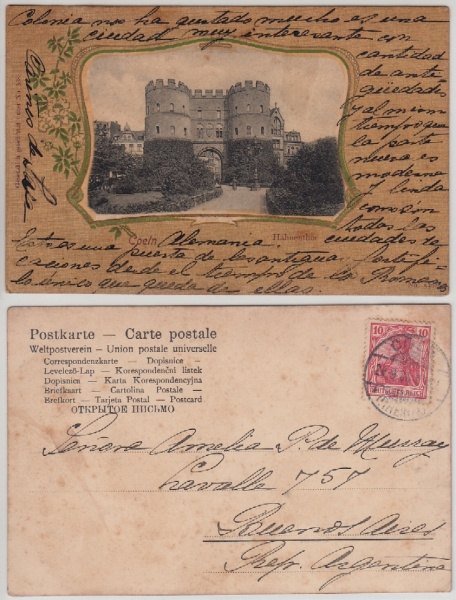 Colonia nos ha gustado mucho es una
ciudad muy interesante con
cantidad
de ante
güedades
y al mismo
tiempo que
la parte
nueva es
moderna
y linda
como son
todas las
ciudades de
Alemania
Coeln
Hahnenthor
Esta es una puerta de las antiguas fortifi-
caciones desde el tiempo de los Romanos
lo unico que queda de ellas.
Postkarte — Carte postale
Weltpostverein — Union postale universelle
Correspondenzkarte — Dopisnice —
Levelező-Lap — Korespondenční lístek
Dopisnica — Karta Korespondencyjna
Briefkaart — Cartolina Postale —
Brefkort — Tarjeta Postal — Postcard
ОТКРЫТОЕ ПИСЬМО
10 10
Señora Amelia P. de Murray
Lavalle 757
Buenos Aires
Rep. Argentina